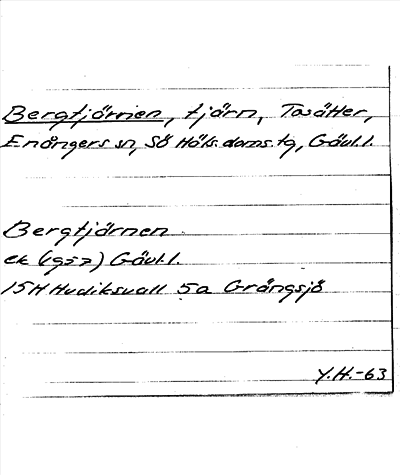 Bergtjärnen, tjärn, Tosätter,
Enångers sn, Sö Häls. doms. tg, Gävl. l.
Bergtjärnen
ek (1957) Gävl. l.
15H Hudiksvall 5a Grängsjö
Y.H.-63